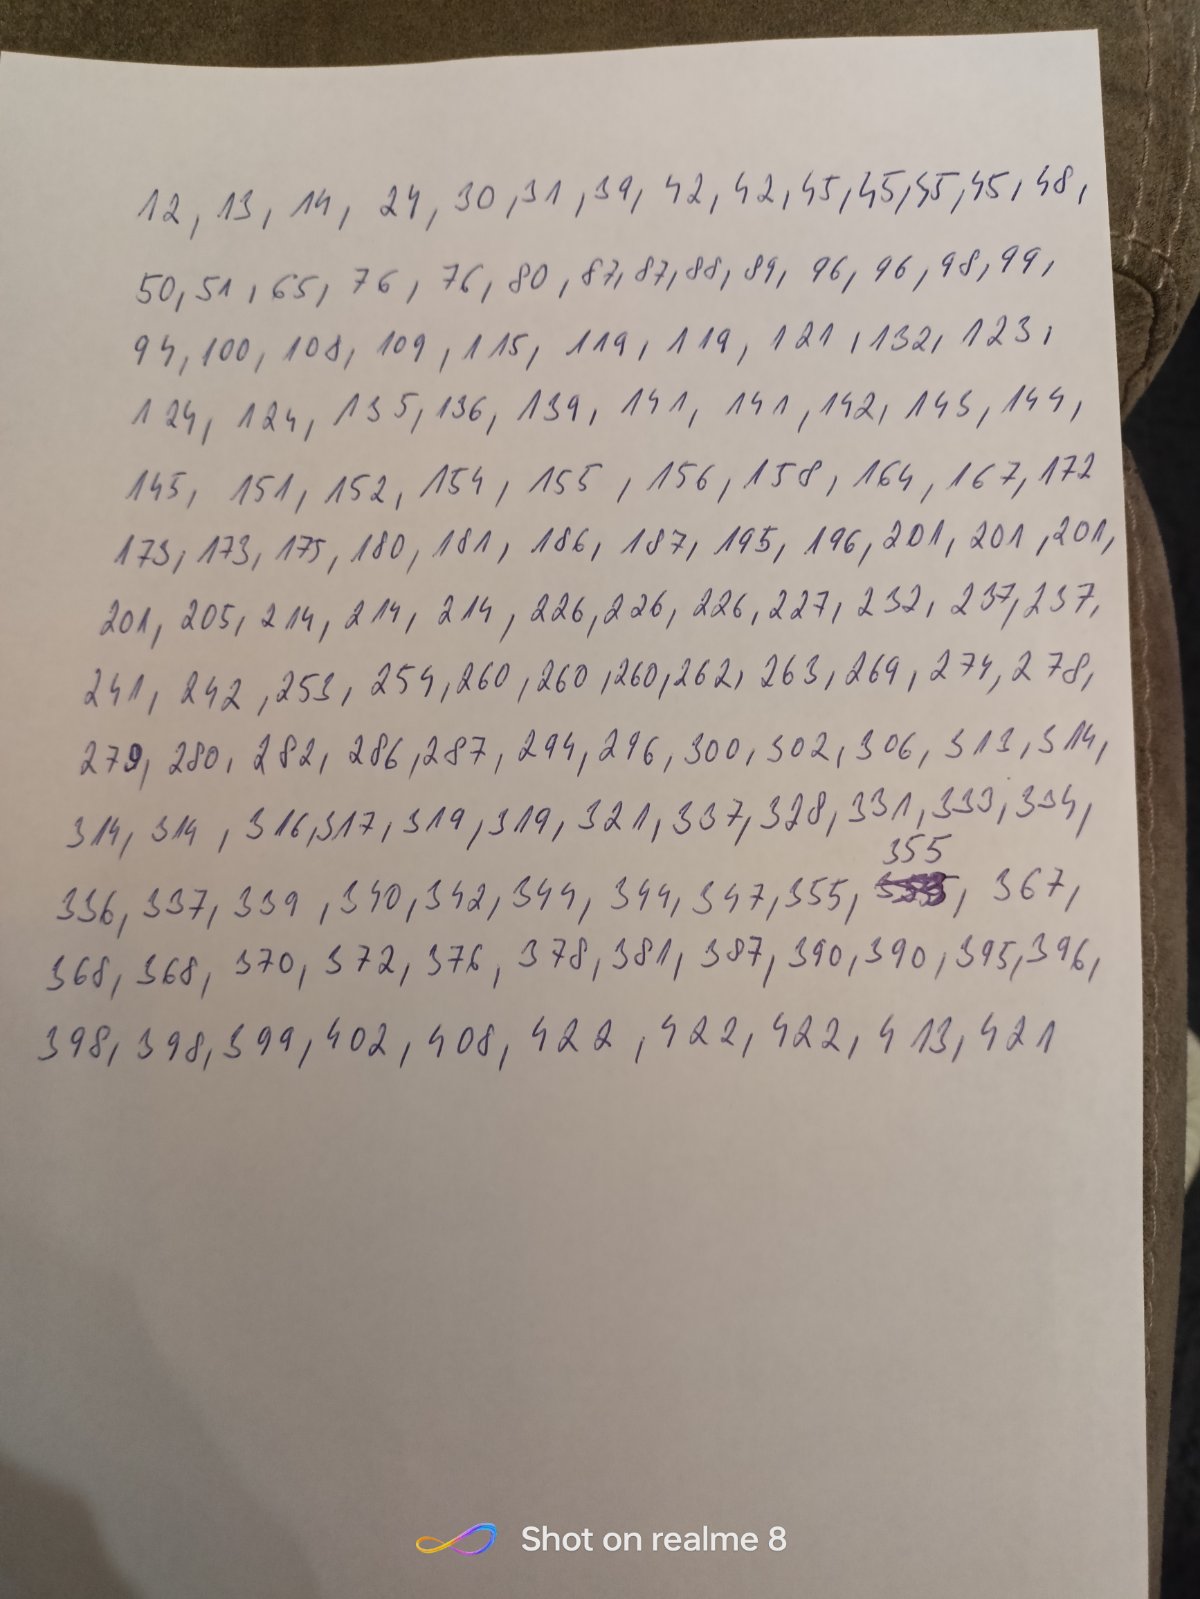 12, 13, 14, 24, 30, 31, 39, 42, 42, 45, 45, 45, 45, 48,
50, 51, 65, 76, 76, 80, 87, 87, 88, 89, 96, 96, 98, 99,
94, 100, 108, 109, 115, 119, 119, 121, 132, 123,
124, 124, 135, 136, 139, 141, 141, 142, 143, 144,
145, 151, 152, 154, 155, 156, 158, 164, 167, 172
173, 173, 175, 180, 181, 186, 187, 195, 196, 201, 201, 201,
201, 205, 214, 214, 214, 226, 226, 226, 227, 232, 237, 237,
241, 242, 253, 254, 260, 260, 260, 262, 263, 269, 274, 278,
279, 280, 282, 286, 287, 294, 296, 300, 302, 306, 313, 314,
314, 314, 316, 317, 319, 319, 321, 337, 328, 331, 333, 334,
336, 337, 339, 340, 342, 344, 344, 347, 355, 355, 367,
368, 368, 370, 372, 376, 378, 381, 387, 390, 390, 395, 396,
398, 398, 399, 402, 408, 422, 422, 422, 413, 421
Shot on realme 8